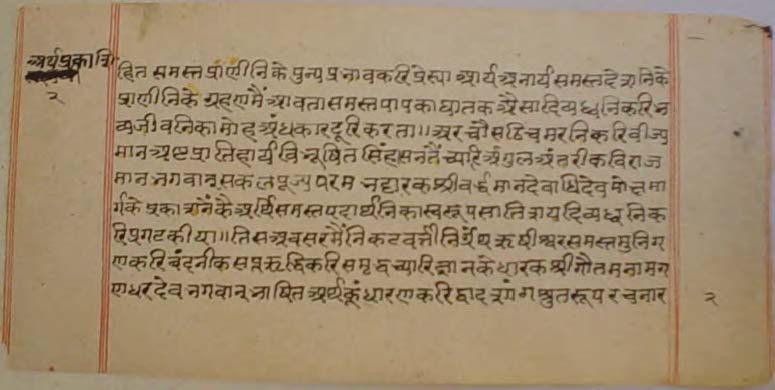 अर्थप्रकाशि
२
हित समस्त प्राणीनिके पुन्य प्रभावकरि प्रेस्या आर्य अनार्य समस्त देशनिके
प्राणीनिके ग्रहणमैं आवता समस्त पापका घातक औसा दिव्यध्वनिकरि भ
व्यजीवनिका मोह अंधकार दूरि करता॥ अर चौसठि चमरनिकरि वीज्य
मान अष्टप्रातिहार्य विभूषित सिंहासनतैं च्यारि अंगुल अंतरीक विराज
मान भगवान् सकलपूज्य परम भट्टारक श्रीवर्द्धमान देवाधिदेव मोक्षमा
र्गके प्रकाशनेंकै अर्थि समस्त पदार्थनिका स्वरूप सातिशय दिव्यध्वनिक
रि प्रगट कीया॥ तिस अवसरमैं निकटवर्त्ती निर्ग्रंथ ऋषीश्वर समस्त मुनिग
णकरि वंदनीक सप्त ऋद्धिकरि समृद्ध च्यारि ज्ञानके धारक श्रीगौतमनामग
णधरदेव भगवान् भाषित अर्थकूं धारणकरि द्वादशांग श्रुतरूप रचना र
२